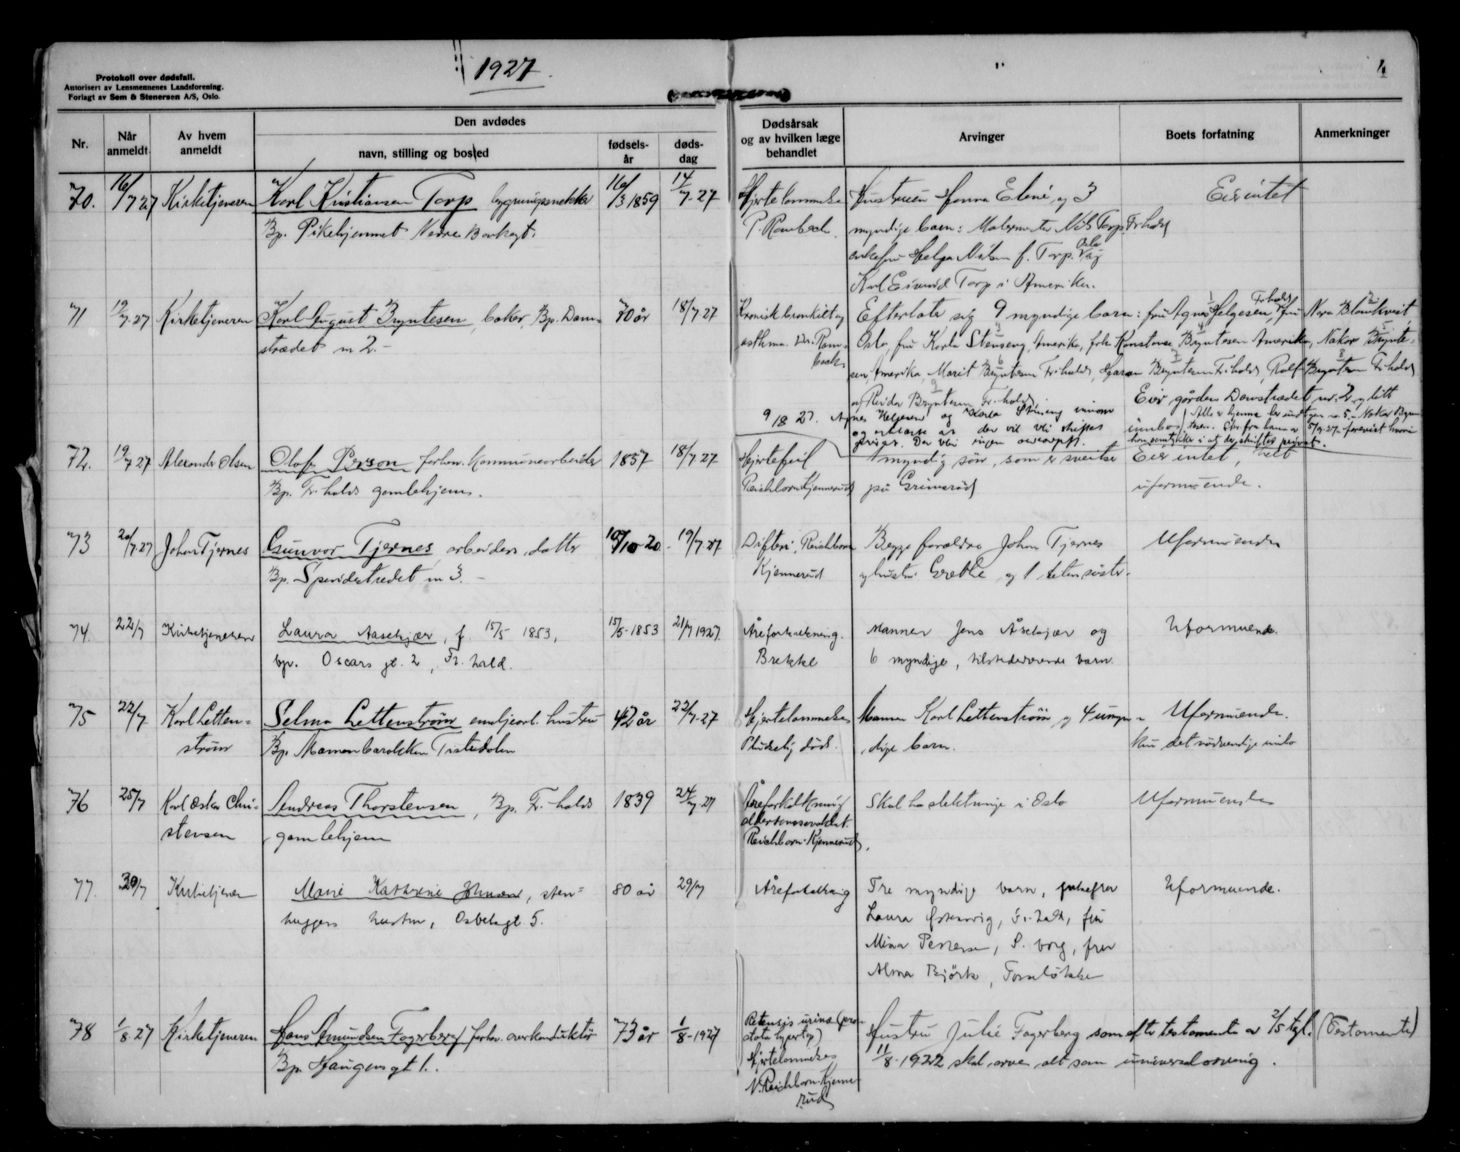 1927.
Protokoll over dødsfall.
Autorisert av Lensmennenes Landsforening.
Forlagt av Sem & Stenersen A/S, Oslo.
Nr.
Når anmeldt
Av hvem anmeldt
Den avdødes
navn, stilling og bosted
fødsels-år
døds-dag
Dødsårsak og av hvilken læge behandlet
Arvinger
Boets forfatning
Anmerkninger
70. 16/7 27 Kirketjeneren Karl Kristiansen Torp bygningssnekker 16/3 1859 14/7-27 Hjertelammelse Hustruen Hanna Eline, og 3 Eier intet
Bp. Pikehjemmet Nedre Bankegt. P. Rambech. myndige barn: Malermester Nils Torp, Fr.hald,
Helga f. Torp. Oslo
Karl Torp i Amerika.
71 19/7-27 Kirketjeneren Karl August Bryntesen, baker, Bp. Dam- 70 år 18/7-27 Kronisk bronkitt og Efterlate sig 9 myndige barn: fru Agnes Helgesen, Fr.hald, fru Nora Blomkvist
strædet nr 2.- asthma. Dr. Ram- Oslo, fru Karla Stenseng, Amerika, frk. Konstanse Bryntesen Amerika, Bryntе-
bech. sen, Amerika, Marit Bryntesen Fr.hald, Bryntesen Fr.hald, Rolf Bryntesen Fr.hald,
Reidar Bryntesen Fr.hald. Eier gården Damstrædet nr. 2 og litt
9/8 27. Agnes Helgesen og Karla Stenseng innbo
og erklærte at der vil bli skiftet
privat. Der blir ingen
72. 19/7-27 Alexander Olsen Olof Person forhv. kommunearbeider 1857 18/7-27 Hjertefeil 1 myndig søn, som er sveitser Eier intet, helt
Bp. Fr.halds gamlehjem. Reichborn Kjennerud på Grimsrød uformuende.
73 20/7-27 Johan Tjernes Gunvor Tjernes, arbeiders datter 10-20. 19/7-27 Difteri, Reichborn Begge foreldre Johan Tjernes Uformuende
Bp. nr 3.- Kjennerud og hustru Grethe, og 1 liten søster.
74. 22/7 Kirketjeneren Laura Aasekjær, f. 15/5 1853, 15/5-1853 21/7 1927. Åreforkalkning. Mannen Jens Åsekjær og Uformuende.
bp. Oscars gt. 2, Fr. hald. Brekke 6 myndige, tilstedeværende barn.
75 22/7 Karl Letten- Selma Lettenstrøm emaljearb. hustru 42 år 22/7-27 Hjertelammelse Mannen Karl Lettenstrøm og 4 umyn- Uformuende.
strøm Bp. Tistedalen Pludselig død. dige barn. Kun det nødvendige innbo
76 25/7 Karl Oskar Chri- Andreas Thorstensen, Bp. Fr.halds 1839 24/7-27 Åreforkalkning Skal ha slektninge i Oslo Uformuende
stensen gamlehjem alderdomssvakhet.
Reichborn-Kjennerud.
77. 30/7 Kirketjener Marie Kathrine Johansen, sten- 80 år 29/7 Åreforkalkning Tre myndige barn, Uformuende.
huggers hustru, 5. Laura Fr.hald, fru
Mina Petersen, S. borg, fru
Alma Bjørk, Torsløkke
78 1/8-27 Kirketjeneren Hans Amundsen Fagerberg forhv. overkonduktør 73 år 1/8-1927 Retensjo urinæ (pro- Hustru Julie Fagerberg som efter testamente av 2/5 tgl. (Testamente)
Bp. Haugens gt 1. stata hypertr.) 11/8-1922 skal arve alt som universalarving.
Hjertelammelse
N. Reichborn-Kjenne-
rud